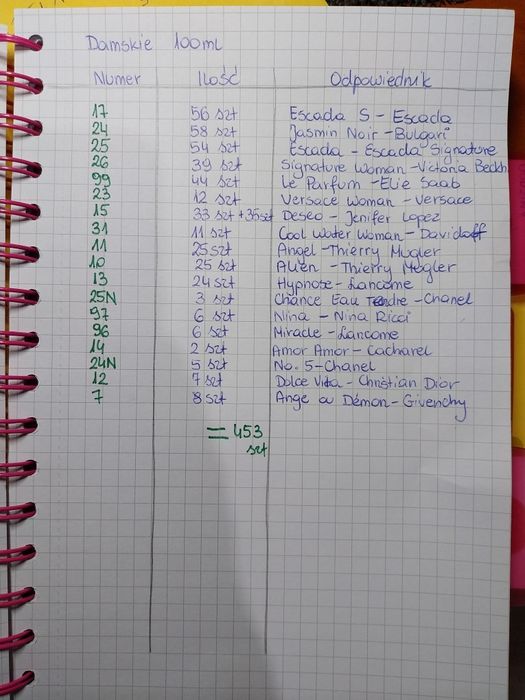 Damskie 100ml
Numer Ilość Odpowiednik
17 56 szt Escada S - Escada
24 58 szt Jasmin Noir - Bulgari
25 54 szt Escada - Escada Signature
26 39 szt Signature Woman - Victoria Beckh
99 44 szt Le Parfum - Elie Saab
23 12 szt Versace Woman - Versace
15 33 szt + 35szt Deseo - Jenifer Lopez
31 11 szt Cool Water Woman - Davidoff
11 25szt Angel - Thierry Mugler
10 25 szt Alien - Thierry Megler
13 24szt Hypnose - Lancome
25N 3 szt Chance Eau Tendre - Chanel
97 6 szt Nina - Nina Ricci
96 6 szt Miracle - Lancome
14 2 szt Amor Amor - Cacharel
24N 5 szt No. 5 - Chanel
12 7 szt Dolce Vita - Christian Dior
7 8 szt Ange ou Démon - Givenchy
= 453
szt